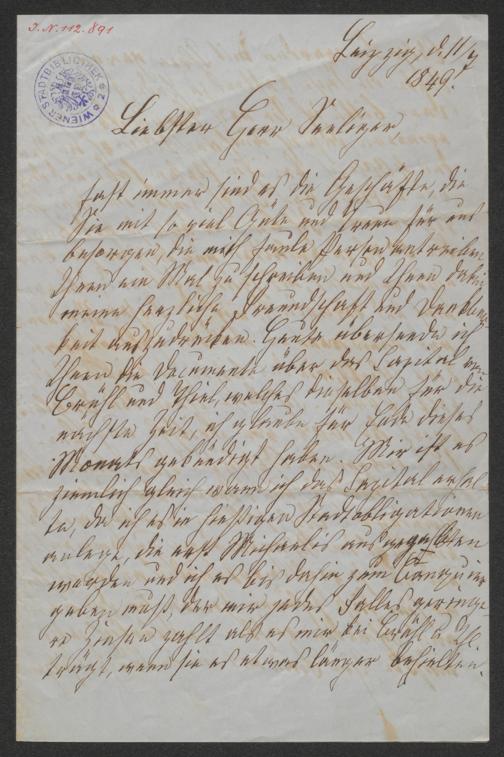 J. N. 112.891
WIENER STADTBIBLIOTHEK
Leipzig, d. 11/7
1849.
Liebster Herr Seeliger
fast immer sind es die Geschäfte, die
Sie mit so viel Güte und Treue für uns
besorgen, die mich faule Person antreiben
Ihnen ein Mal zu schreiben und Ihnen dabei
meine herzliche Freundschaft und Dankbar
keit auszudrücken. Heute übersende ich
Ihnen die Documente über das Capital von
Brühl und welches dieselben für die
nächste Zeit, ich glaube für Ende dieses
Monats gekündigt haben. Mir ist es
ziemlich gleich wann ich das Capital erhal
te, da ich es in hiesigen Stadtobligationen
anlege, die erst Michaelis ausgegeben
werden und ich es bis dahin zum Banquier
geben muß, der mir jedes Falles geringe
re Zinsen zahlt als es mir bei Brühl u
trägt, wenn sie es etwas länger behielten.